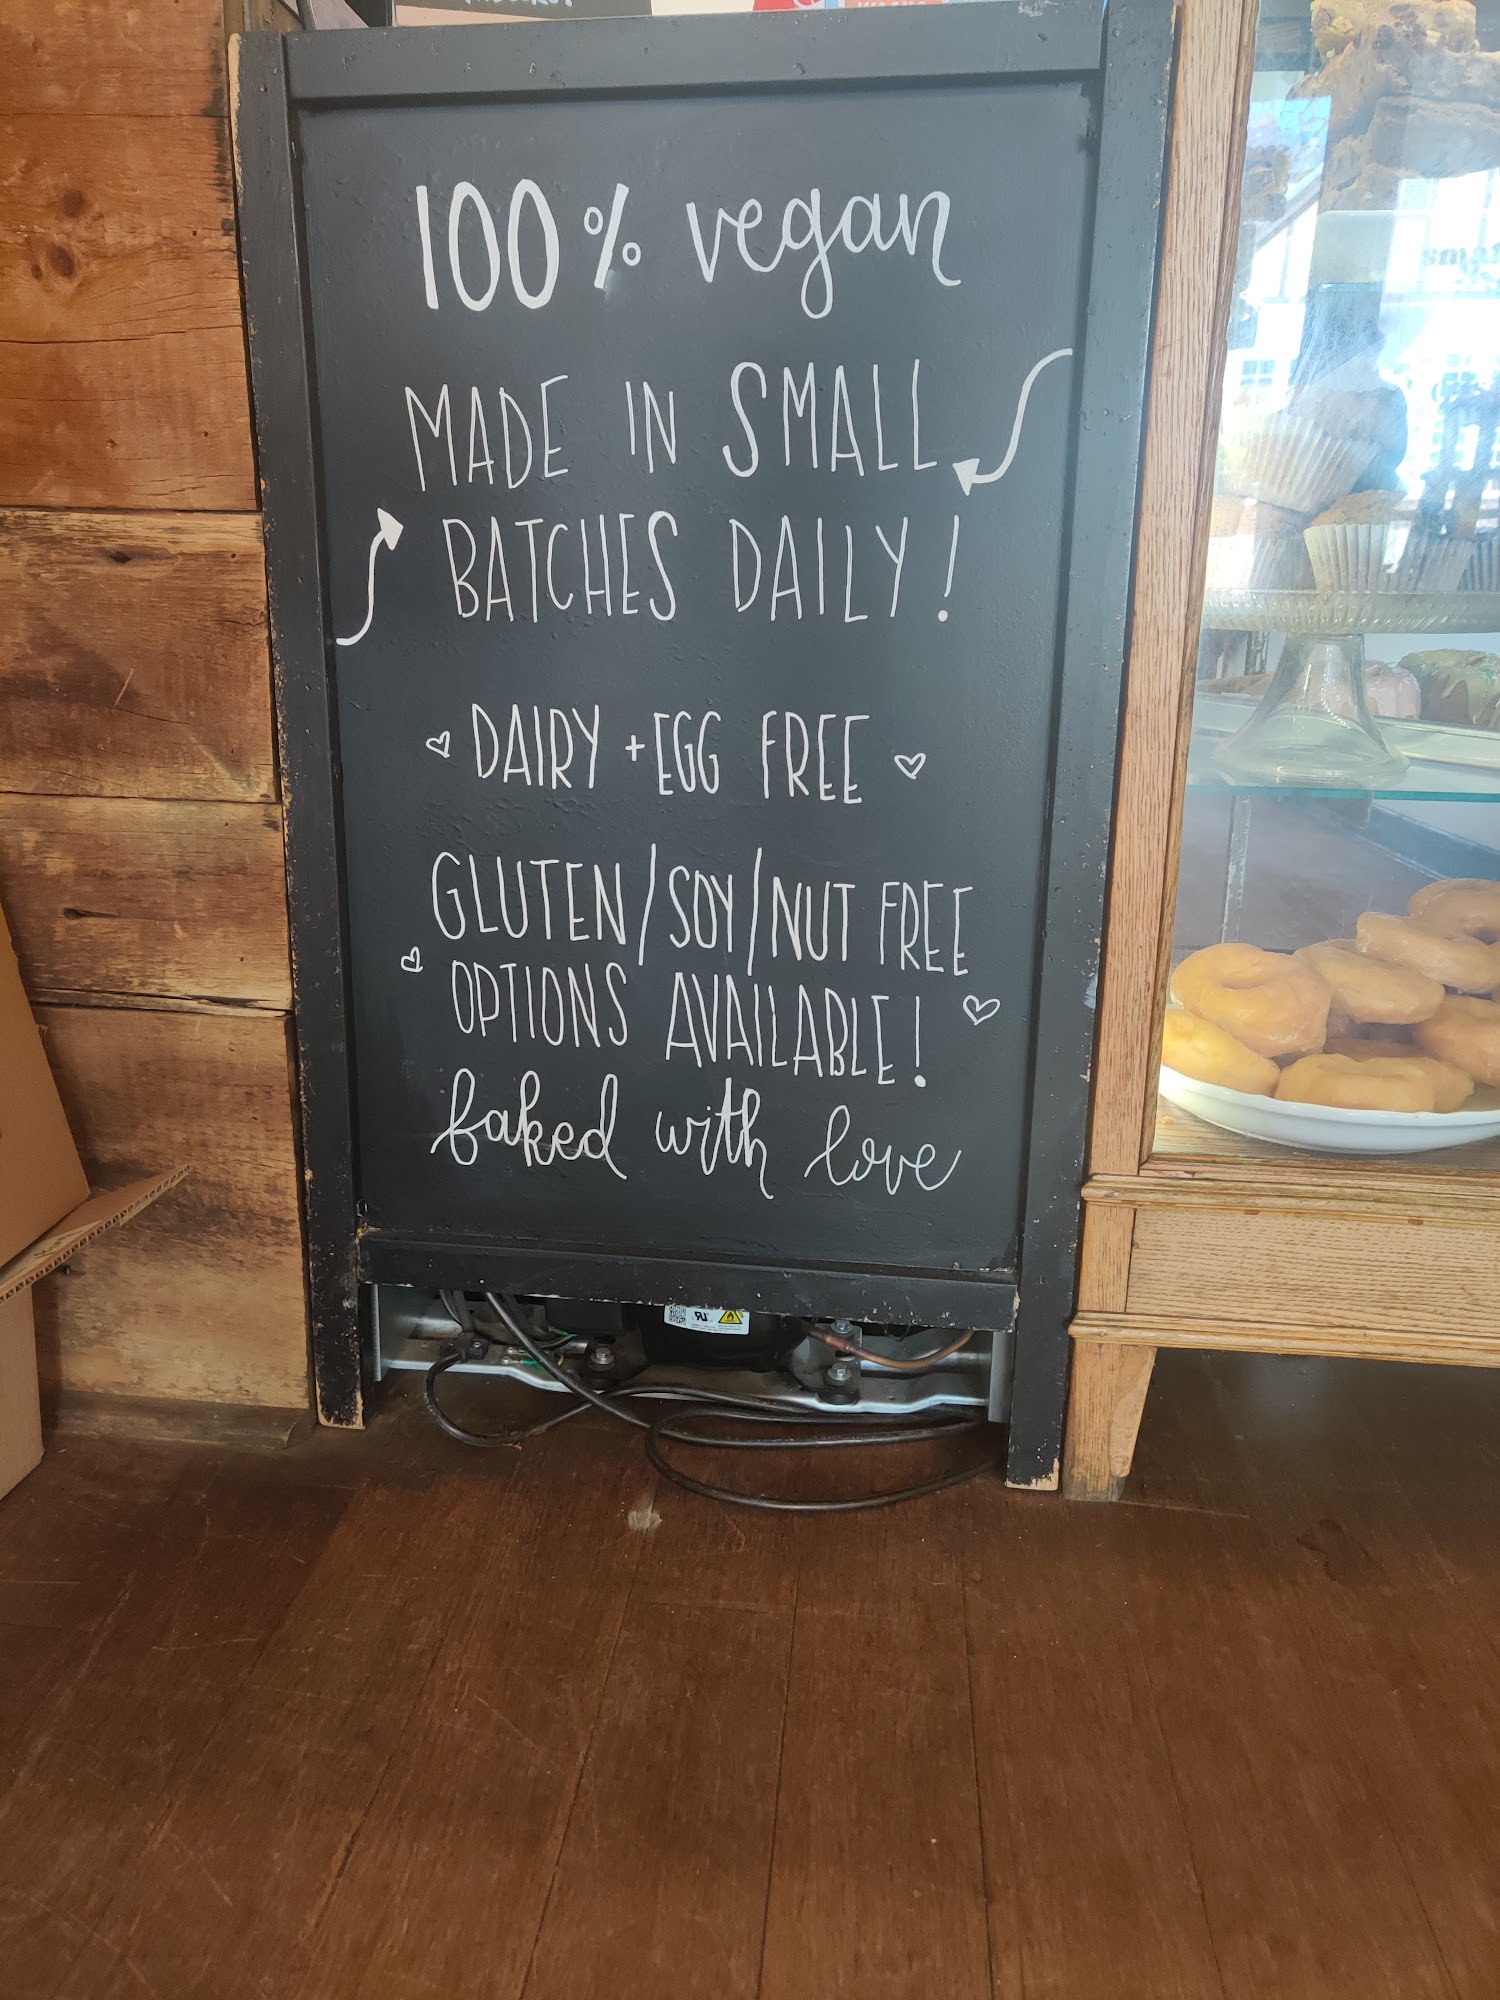 100% vegan
MADE IN SMALL
BATCHES DAILY!
DAIRY + EGG FREE
GLUTEN/SOY/NUT FREE
OPTIONS AVAILABLE!
baked with love